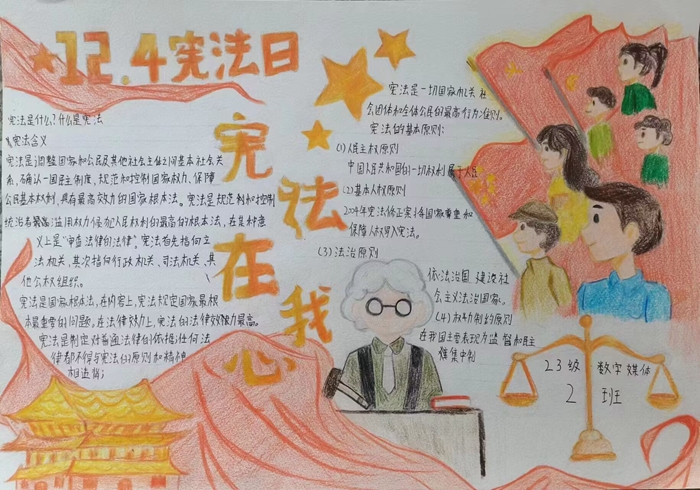 12.4宪法日
宪法在我心
宪法是什么?什么是宪法
宪法含义
宪法是调整国家和公民及其他社会主体之间基本社会关
系,确认一国民主制度、规范和控制国家权力、保障
公民基本权利,具有最高效力的国家根本法。宪法是规范和控制
统治者
滥用权力侵犯人民权利的最高的根本法,在
义上是"审查法律的法律",宪法首先指向立
法机关,其次指向行政机关、司法机关、其
他公权组织。
宪法是国家根本法,在内容上,宪法规定国家最根
本最重要的问题。在法律效力上,宪法的法律效力最高。
宪法是制定对普通法律的依据,任何法
律都不得与宪法的原则和精神
相违背;
宪法是一切国家机关 社
会团体和全体公民的最高行为准则。
宪法的基本原则:
(1)人民主权原则
中国人民共和国的一切权利属于人民
(2)基本人权原则
2004年宪法修正案将国家尊重和
保障人权写入宪法。
(3)法治原则
依法治国 建设社
会主义法治国家。
(4)权力制约原则
在我国主要表现为监督和民主
集中制
23级 数字媒体
2班